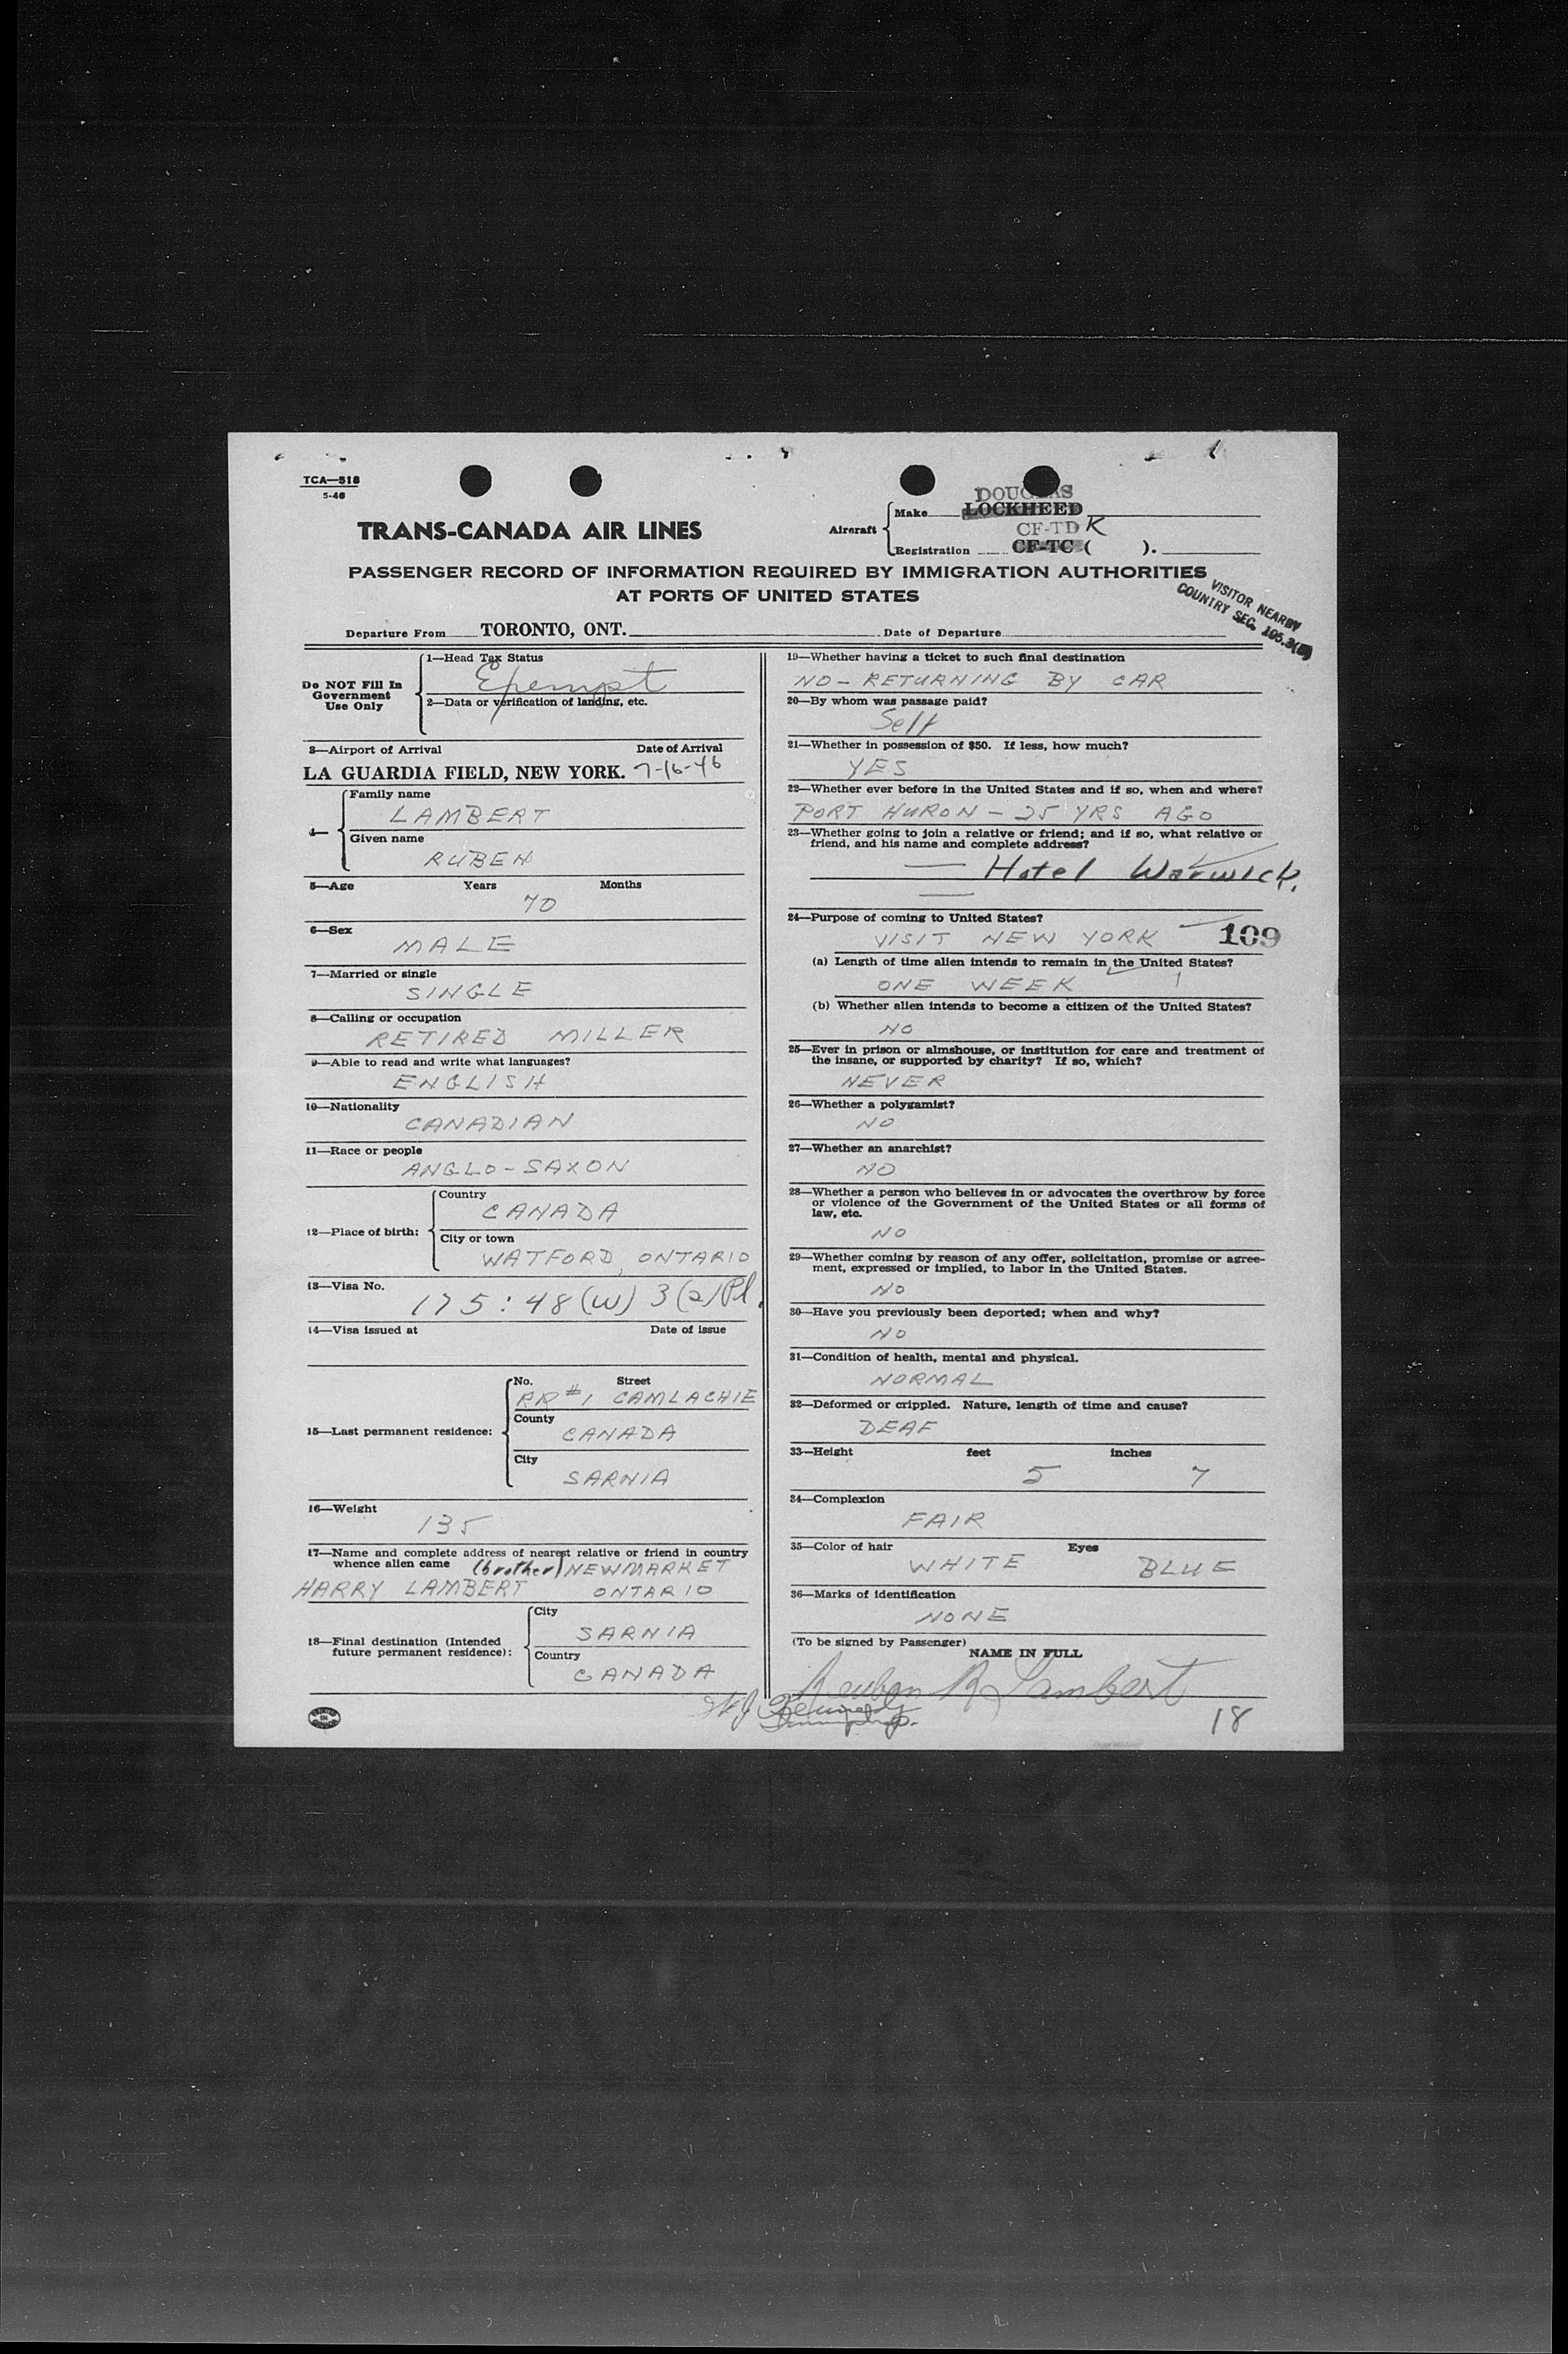 TCA—518
5-46
DOUGLAS
Make LOCKHEED
TRANS-CANADA AIR LINES
Aircraft
CF-TD K
Registration CF-TC ( ).
PASSENGER RECORD OF INFORMATION REQUIRED BY IMMIGRATION AUTHORITIES
AT PORTS OF UNITED STATES
VISITOR NEARBY
COUNTRY SEC. 105.3
Departure From TORONTO, ONT. Date of Departure
Do NOT Fill In
Government
Use Only
1—Head Tax Status
Exempt
2—Data or verification of landing, etc.
3—Airport of Arrival Date of Arrival
LA GUARDIA FIELD, NEW YORK. 7-16-46
4—
Family name
LAMBERT
Given name
RUBEN
5—Age Years Months
70
6—Sex
MALE
7—Married or single
SINGLE
8—Calling or occupation
RETIRED MILLER
9—Able to read and write what languages?
ENGLISH
10—Nationality
CANADIAN
11—Race or people
ANGLO-SAXON
12—Place of birth:
Country
CANADA
City or town
WATFORD, ONTARIO
13—Visa No.
175:48(W) 3(2)Pl.
14—Visa issued at Date of issue
15—Last permanent residence:
No. Street
RR #1 CAMLACHIE
County
CANADA
City
SARNIA
16—Weight
135
17—Name and complete address of nearest relative or friend in country
whence alien came (brother) NEWMARKET
HARRY LAMBERT ONTARIO
18—Final destination (Intended
future permanent residence):
City
SARNIA
Country
CANADA
19—Whether having a ticket to such final destination
NO - RETURNING BY CAR
20—By whom was passage paid?
Self
21—Whether in possession of $50. If less, how much?
YES
22—Whether ever before in the United States and if so, when and where?
PORT HURON - 25 YRS AGO
23—Whether going to join a relative or friend; and if so, what relative or
friend, and his name and complete address?
— Hotel Warwick.
—
24—Purpose of coming to United States?
VISIT NEW YORK 109
(a) Length of time alien intends to remain in the United States?
ONE WEEK
(b) Whether alien intends to become a citizen of the United States?
NO
25—Ever in prison or almshouse, or institution for care and treatment of
the insane, or supported by charity? If so, which?
NEVER
26—Whether a polygamist?
NO
27—Whether an anarchist?
NO
28—Whether a person who believes in or advocates the overthrow by force
or violence of the Government of the United States or all forms of
law, etc.
NO
29—Whether coming by reason of any offer, solicitation, promise or agree-
ment, expressed or implied, to labor in the United States.
NO
30—Have you previously been deported; when and why?
NO
31—Condition of health, mental and physical.
NORMAL
32—Deformed or crippled. Nature, length of time and cause?
DEAF
33—Height feet inches
5 7
34—Complexion
FAIR
35—Color of hair Eyes
WHITE BLUE
36—Marks of identification
NONE
(To be signed by Passenger)
NAME IN FULL
Reuben R Lambert
Kennedy
18